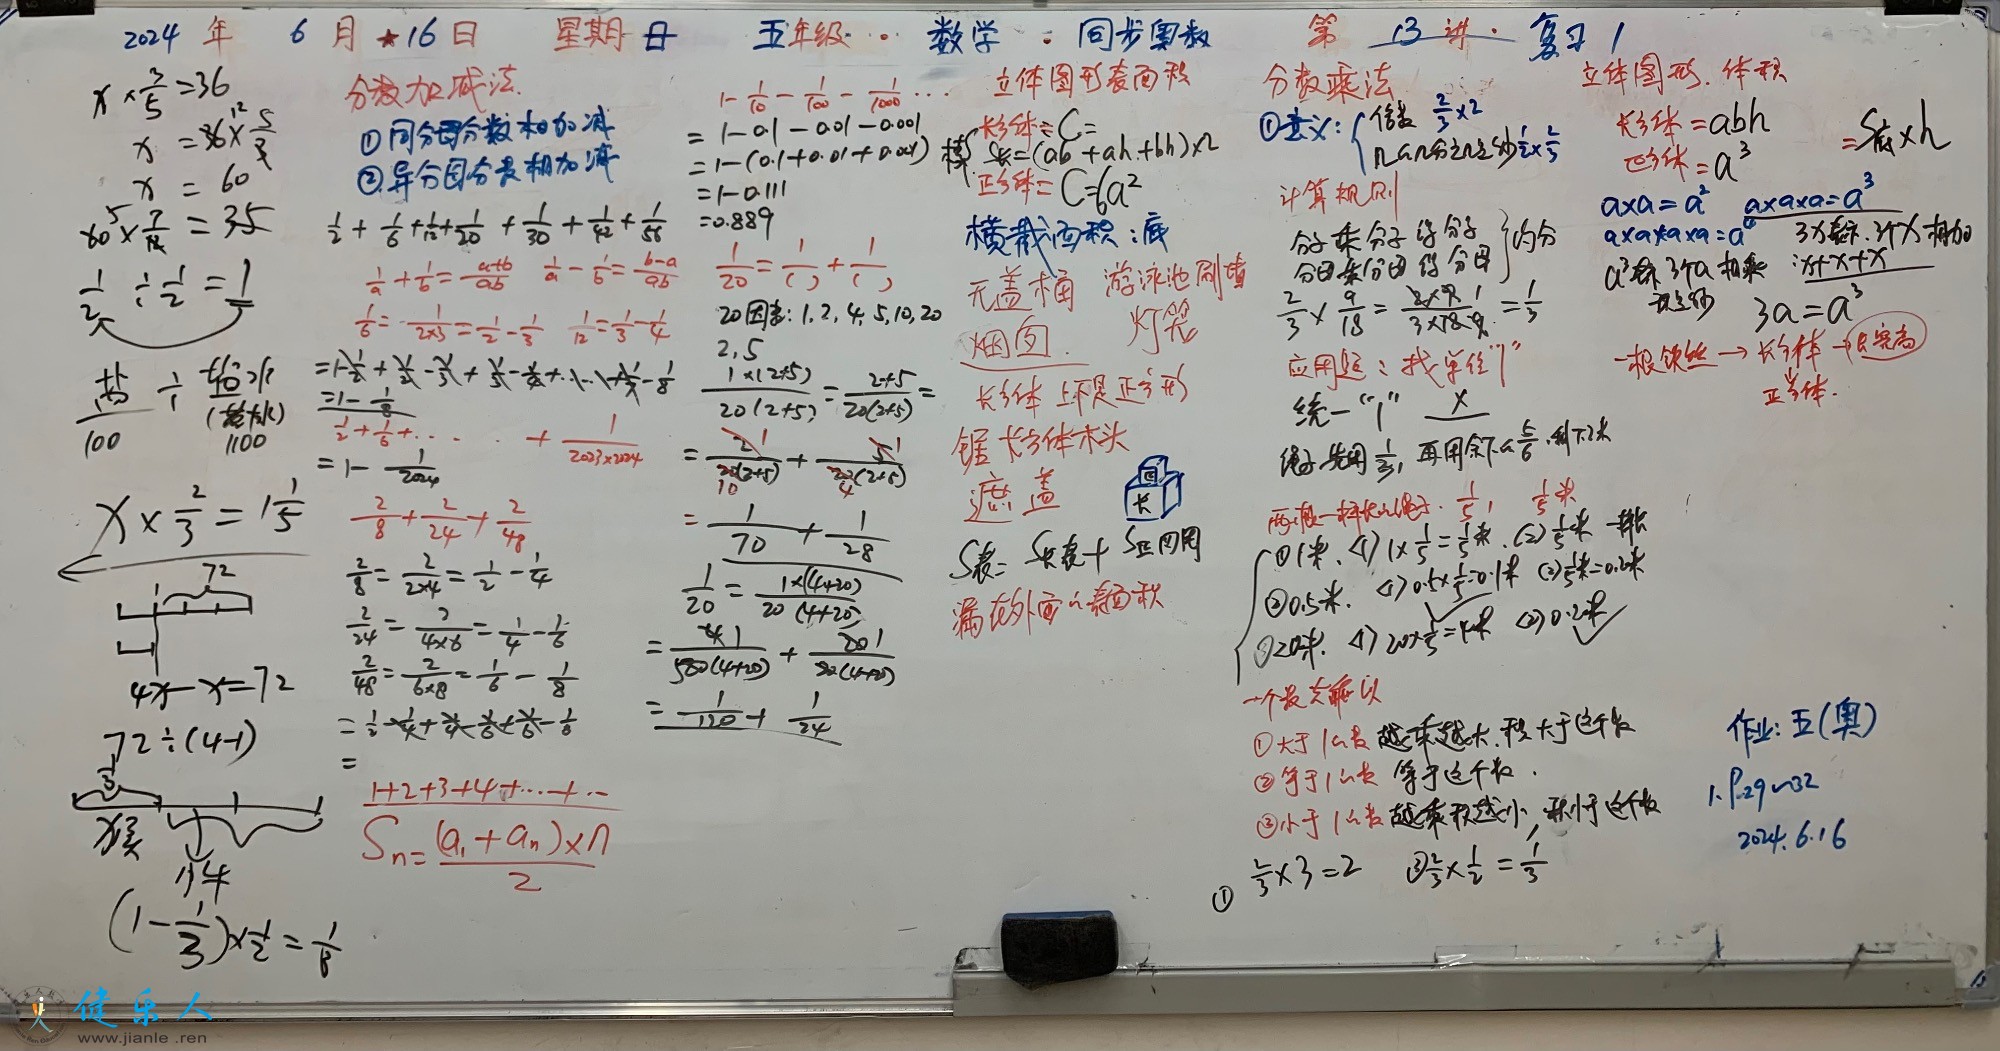 2024 年 6 月 16 日 星期日 五年级 数学 同步奥数 第 13 讲 复习 1
x × 3/5 = 36
x = 36 × 5/3
12
x = 60
60 × 7/12 = 35
5
1/2 ÷ 1/2 = 1
盐 ÷ 盐水
100
1100
x × 2/3 = 1 1/5
72
4x - x = 72
72 ÷ (4-1)
1/3
14
(1 - 1/3) × 1/2 =
分数加减法
① 同分母分数相加减
② 异分母分数相加减
1/2 + 1/6 + 1/12 + 1/20 + 1/30 + 1/42 + 1/56
1/a + 1/b = a+b/ab 1/a - 1/b = b-a/ab
1/6 = 1/2×3 = 1/2 - 1/3 1/12 = 1/3 - 1/4
= 1 - 1/8
1/2 + 1/6 + …… + 1/2023×2024
= 1 - 1/2024
2/8 + 2/24 + 2/48
2/8 = 2/2×4 = 1/2 - 1/4
2/24 = 2/4×6 = 1/4 - 1/6
2/48 = 2/6×8 = 1/6 - 1/8
= 1/2 - 1/4 + 1/4 - 1/6 + 1/6 - 1/8
=
1+2+3+4+……+…
Sn = (a₁ + an) × n / 2
1 - 1/10 - 1/100 - 1/1000 …
= 1 - 0.1 - 0.01 - 0.001
= 1 - (0.1 + 0.01 + 0.001)
= 1 - 0.111
= 0.889
1/20 = 1/( ) + 1/( )
20因数: 1, 2, 4, 5, 10, 20
2, 5
1×(2+5)/20(2+5) = 2+5/20(2+5) =
= 2/20(2+5) + 5/20(2+5)
1 1
10 4
= 1/70 + 1/28
1/20 = 1×(4+20)/20(4+20)
= 1/120 + 1/24
立体图形表面积
长方体 = C =
S长 = (ab + ah + bh) × 2
正方体 = C = 6a²
横截面积: 底
无盖桶 游泳池刷墙
烟囱 灯笼
长方体 上下是正方形
锯长方体木头
遮盖
长
S表 = S长表 + S正四周
漏在外面的表面积
分数乘法
① 意义: 倍数 2/3 × 2
几的几分之几是多少 1/2 × 2/3
计算规则
分子乘分子得分子
分母乘分母得分母
约分
2/3 × 9/18 = 2×9/3×18 = 1/3
应用题: 找单位"1"
统一"1" x
绳子先用 1/3, 再用余下的 5/6, 剩下2米
两根一样长的绳子. 1/5, 1/5米
① 1米. (1) 1 × 1/5 = 1/5米. (2) 1/5米 一样长
② 0.5米. (1) 0.5 × 1/5 = 0.1米 (2) 1/5米 = 0.2米
③ 20米. (1) 20 × 1/5 = 4米 (2) 0.2米
一个数去乘以
① 大于1的数 越乘越大. 积大于这个数
② 等于1的数 等于这个数.
③ 小于1的数 越乘积越小, 积小于这个数
① 2/3 × 3 = 2 ③ 2/3 × 1/2 = 1/3
立体图形. 体积
长方体 = abh
正方体 = a³
= S底 × h
a×a = a² a×a×a = a³
a×a×a×a = a⁴ 3x表示. 3个x相加
a³表示 3个a相乘 : x+x+x
是多少 3a = a³
一根铁丝 → 长方体 →
正方体.
作业: 五(奥)
1. P.29~32
2024.6.16
健乐人
www.jianle .ren